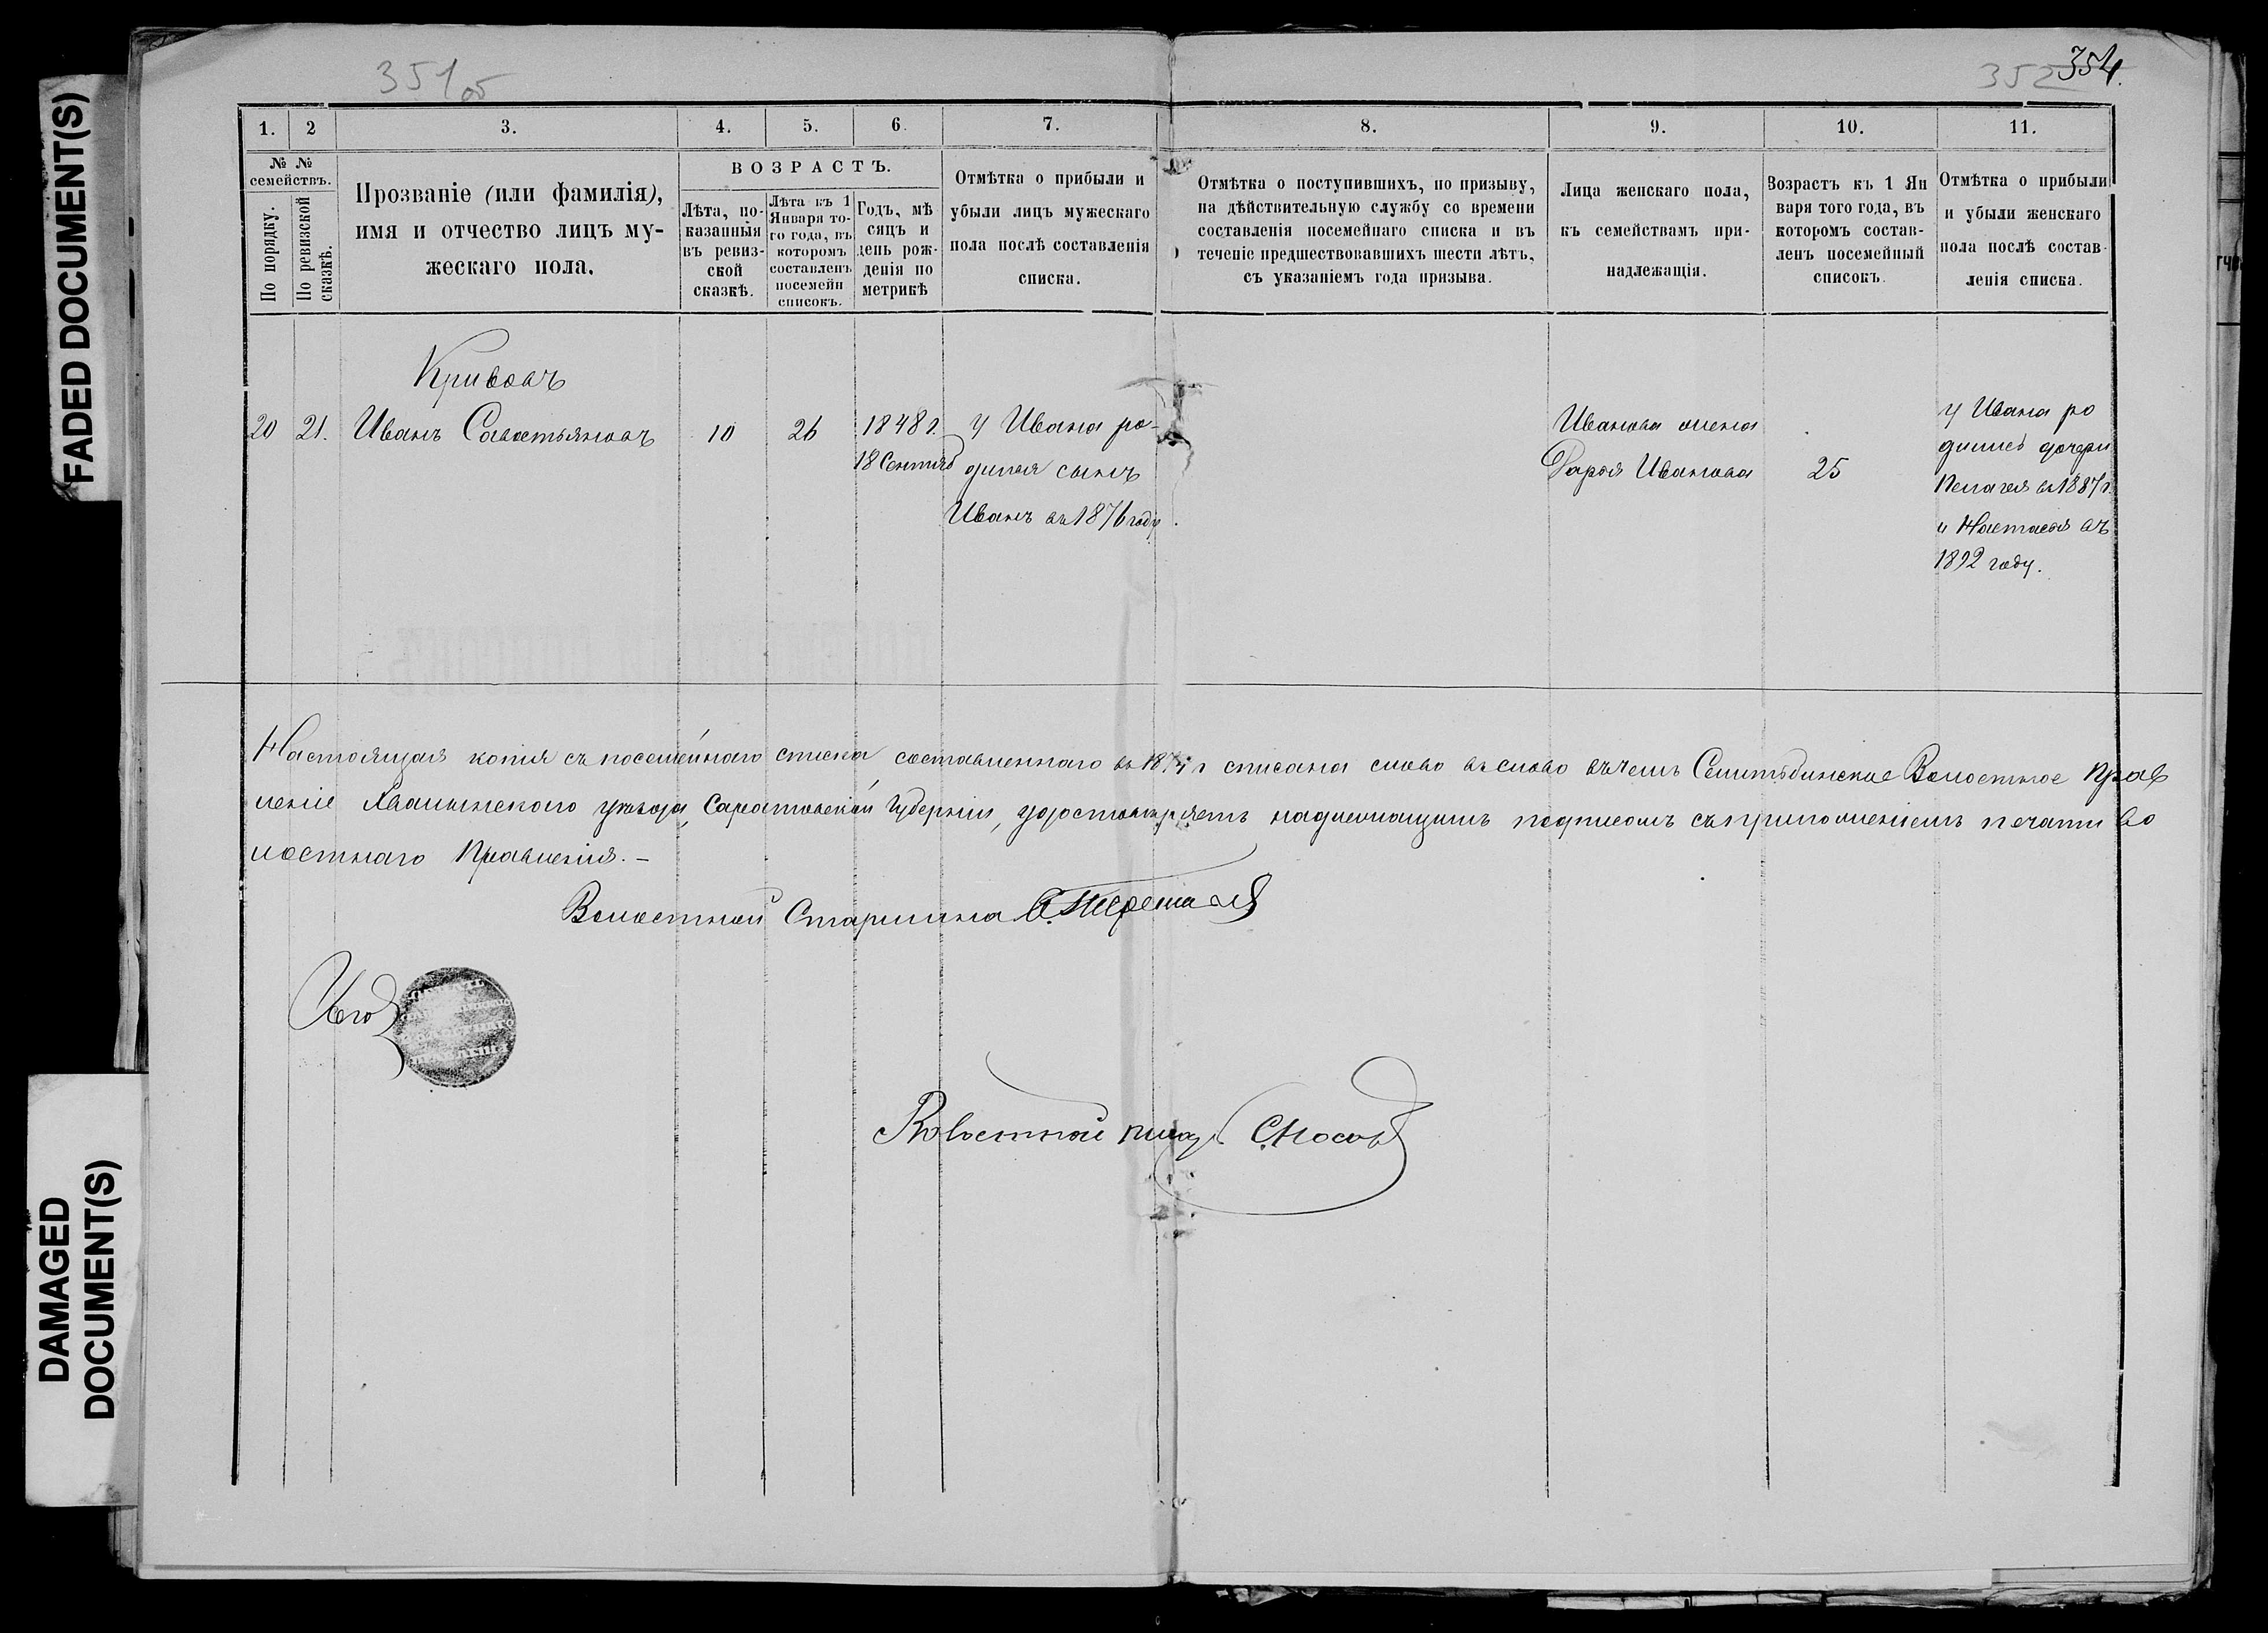 FADED DOCUMENT(S)
DAMAGED
DOCUMENT(S)
351об
352 354.
1. 2 3. 4. 5. 6. 7. 8. 9. 10. 11.
№ №
семействъ.
По порядку.
По ревизской
сказкѣ.
Прозваніе (или фамилія),
имя и отчество лицъ му-
жескаго пола.
ВОЗРАСТЪ.
Лѣта, по-
казанныя
въ ревиз-
ской
сказкѣ.
Лѣта къ 1
Января то-
го года, въ
которомъ
составленъ
посемейн
списокъ.
Годъ, мѣ
сяцъ и
день рож-
денія по
метрикѣ
Отмѣтка о прибыли и
убыли лицъ мужескаго
пола послѣ составленія
списка.
Отмѣтка о поступившихъ, по призыву,
на дѣйствительную службу со времени
составленія посемейнаго списка и въ
теченіе предшествовавшихъ шести лѣтъ,
съ указаніемъ года призыва.
Лица женскаго пола,
къ семействамъ при-
надлежащія.
Возрастъ къ 1 Ян
варя того года, въ
которомъ состав-
ленъ посемейный
списокъ.
Отмѣтка о прибыли
и убыли женскаго
пола послѣ состав-
ленія списка.
Кривовъ
20 21. Иванъ Савостьяновъ 10 26
1848 г.
18 Сентяб
У Ивана ро-
дился сынъ
Иванъ въ 1876 году.
Иванова жена
Дарья Иванова 25
У Ивана ро
дились дочери
Пелагея въ 1887 г.
и Настасья въ
1892 году.
Настоящая копія съ посемейнаго списка составленнаго въ 1874 г списана слово въ слово въ чемъ Волостное Прав
леніе Хвалынскаго уѣзда, Саратовской Губерніи, удостовѣряетъ надлежащимъ подписомъ съ приложеніемъ печати Во
лостнаго Правленія. –
Волостной Старшина
Волостной писарь С. Носовъ